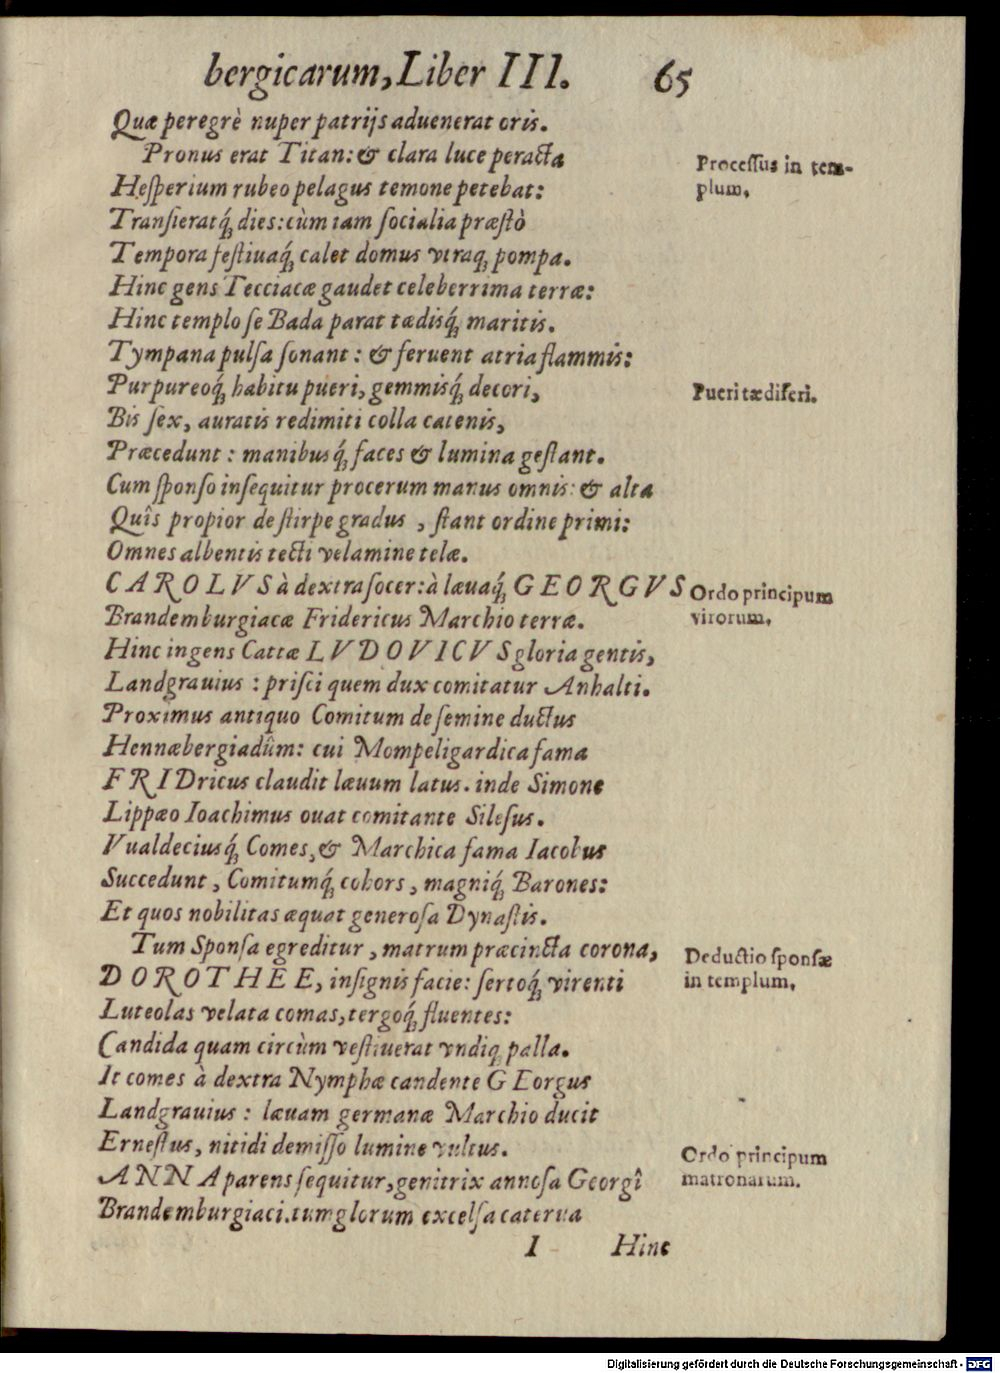 bergicarum, Liber III. 65
Quæ peregrè nuper patrijs aduenerat oris.
Pronus erat Titan: & clara luce peracta
Processus in tem-
Hesperium rubeo pelagus temone petebat:
plum.
Transieratq́; dies: cùm iam socialia præstò
Tempora festiuaq́; calet domus vtraq; pompa.
Hinc gens Tecciacæ gaudet celeberrima terræ:
Hinc templo se Bada parat tædisq́; maritis.
Tympana pulsa sonant: & feruent atria flammis:
Purpureoq́; habitu pueri, gemmisq́; decori,
Pueri tædiferi.
Bis sex, auratis redimiti colla catenis,
Præcedunt: manibusq́; faces & lumina gestant.
Cum sponso insequitur procerum manus omnis: & alta
Quîs propior de stirpe gradus, stant ordine primi:
Omnes albentis tecti velamine telæ.
CAROLVS à dextra socer: à læuaq́; GEORGVS
Ordo principum
Brandemburgiacæ Fridericus Marchio terræ.
virorum.
Hinc ingens Cattæ LVDOVICVS gloria gentis,
Landgrauius: prisci quem dux comitatur Anhalti.
Proximus antiquo Comitum de semine ductus
Hennæbergiadûm: cui Mompeligardica fama
FRIDricus claudit læuum latus. inde Simone
Lippæo Ioachimus ouat comitante Silesus.
Vualdeciusq́; Comes, & Marchica fama Iacobus
Succedunt, Comitumq́; cohors, magniq́; Barones:
Et quos nobilitas æquat generosa Dynastis.
Tum Sponsa egreditur, matrum præcincta corona,
Deductio sponsæ
DOROTHEE, insignis facie: sertoq́; virenti
in templum.
Luteolas velata comas, tergoq́; fluentes:
Candida quam circùm vestiuerat vndiq; palla.
It comes à dextra Nymphæ candente GEorgus
Landgrauius: læuam germanæ Marchio ducit
Ernestus, nitidi demisso lumine vultus.
Ordo principum
ANNA parens sequitur, genitrix annosa Georgî
matronarum.
Brandemburgiaci. tum glorum excelsa caterua
I Hinc
Digitalisierung gefördert durch die Deutsche Forschungsgemeinschaft - DFG